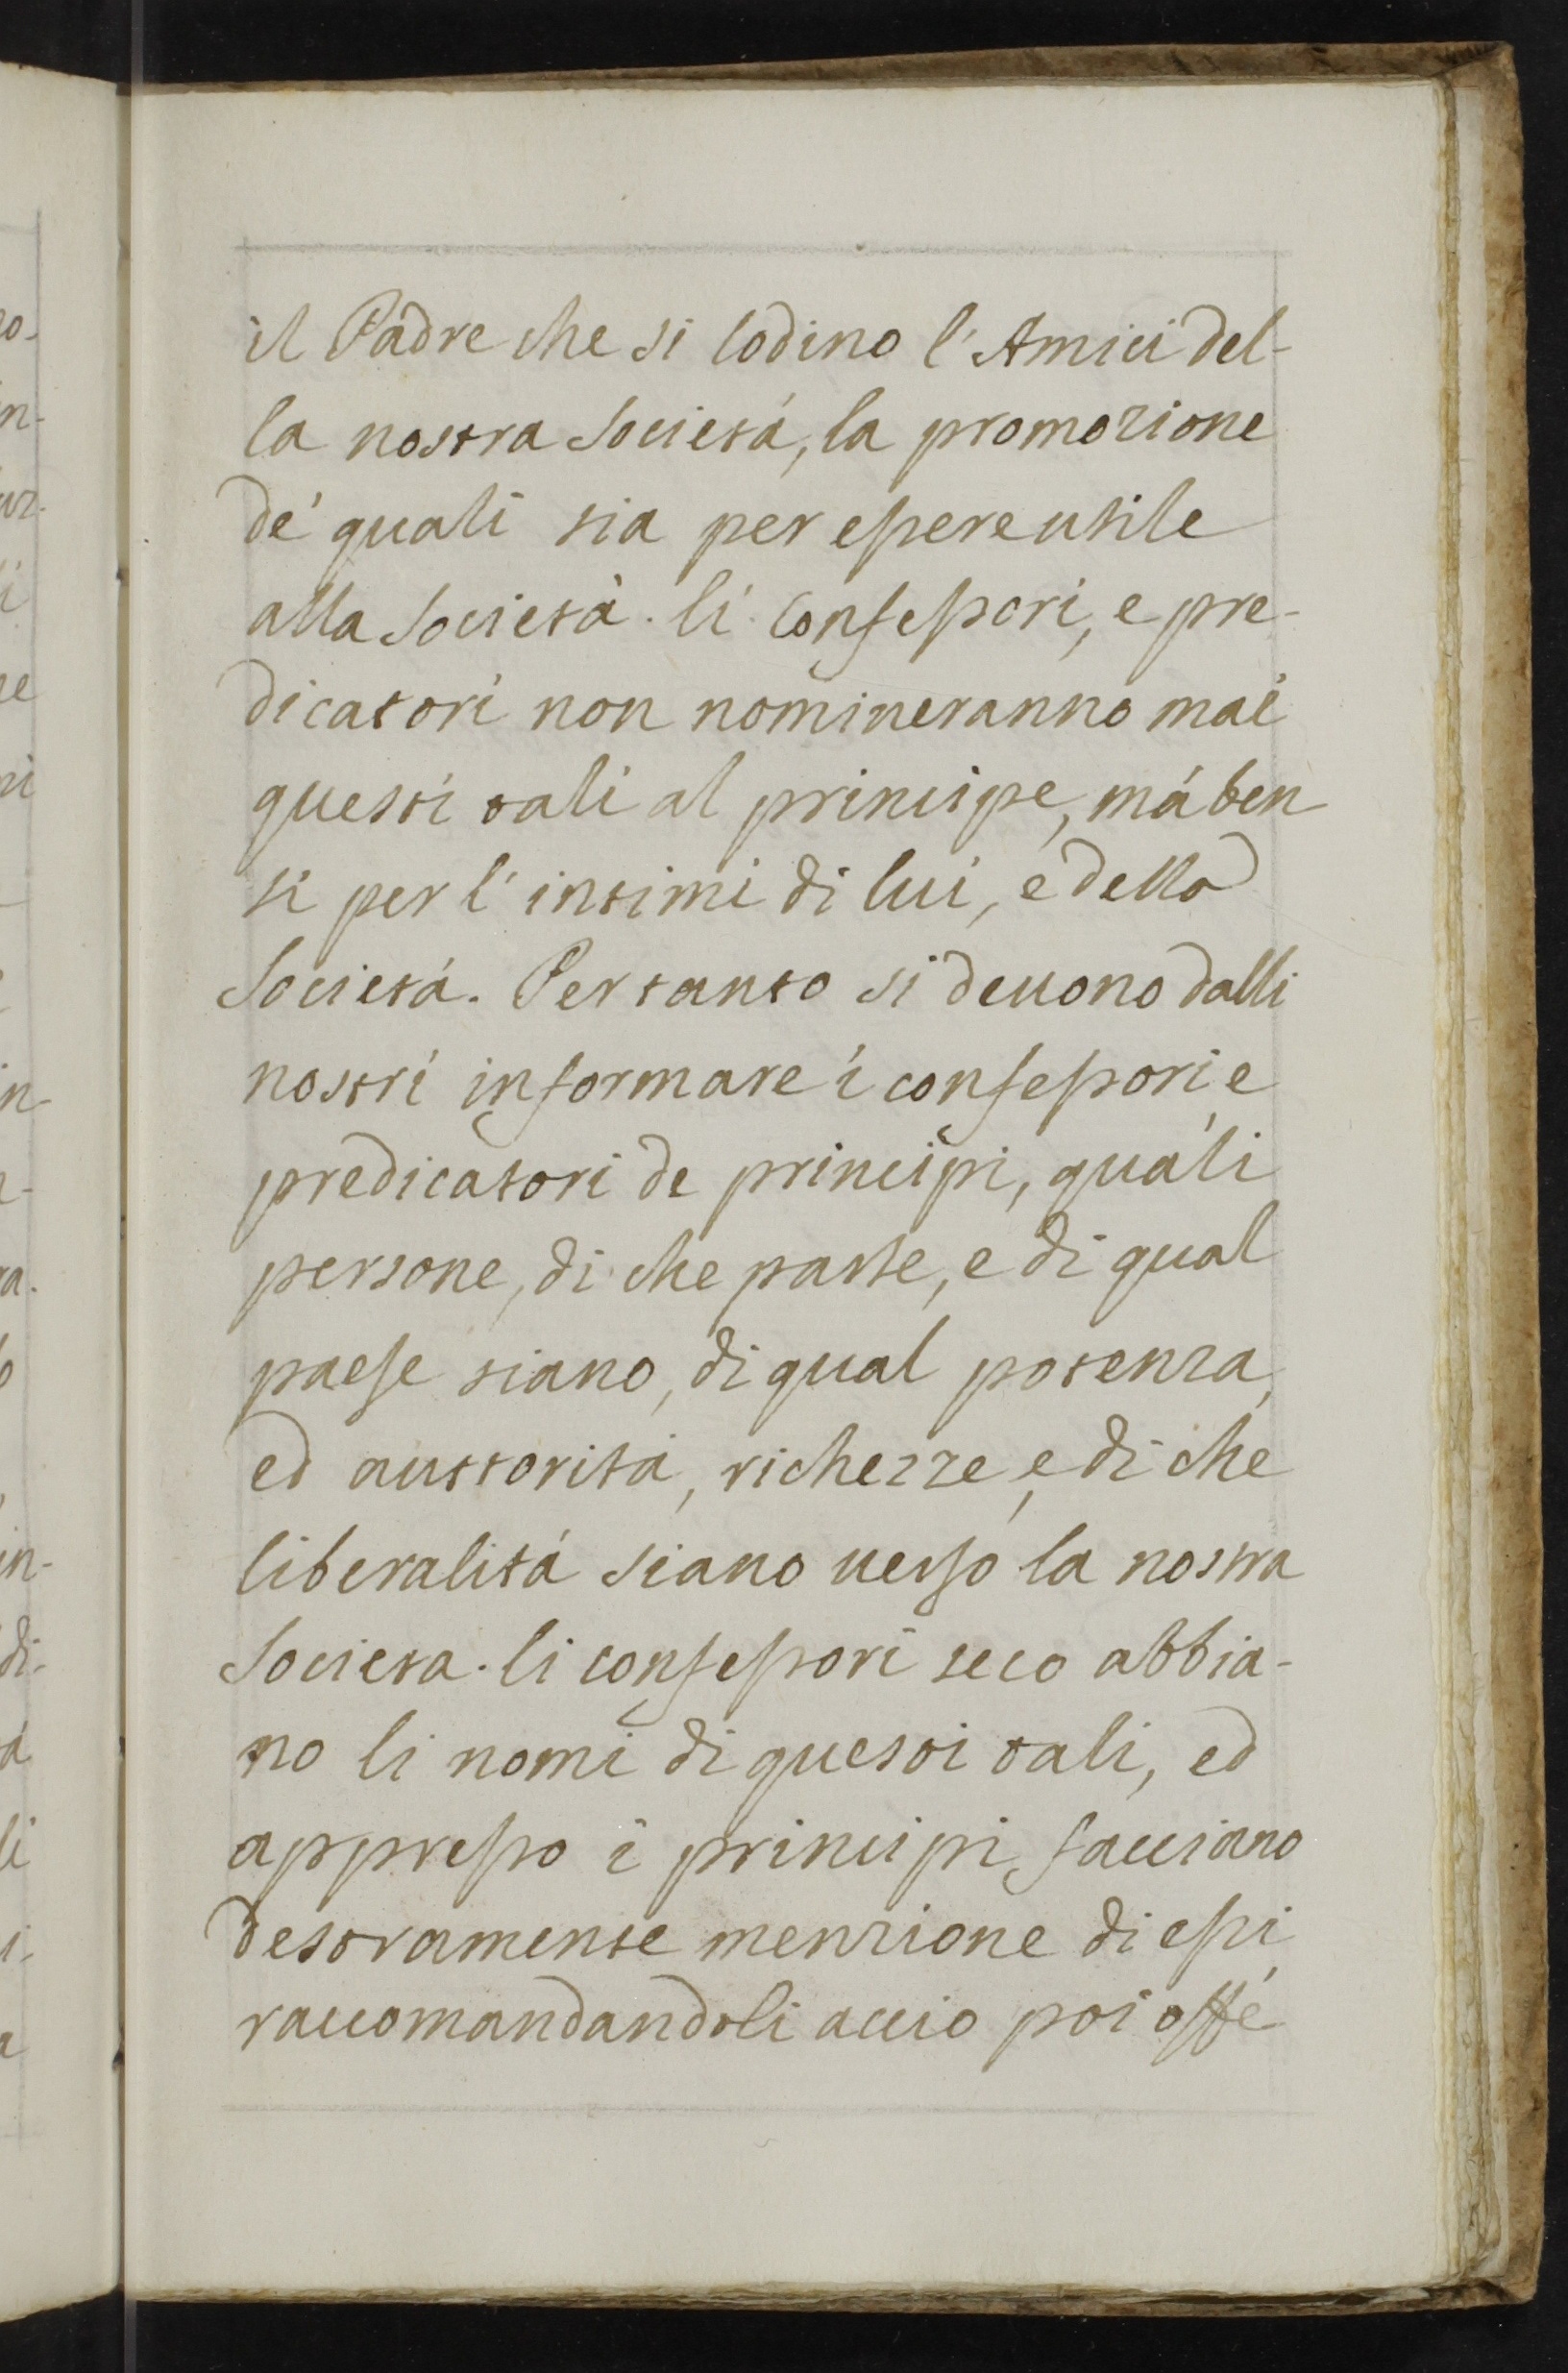 il Padre che si lodino l'Amici del-
la nostra Società, la promozione
de' quali sia per essere utile
alla Società. li Confessori, e pre-
dicatori non nomineranno mai
questi tali al principe, mà ben
si per l'intimi di lui, e della
Società. Per tanto si deuono dalli
nostri informare i confessori e
predicatori de principi, quali
persone, di che parte, e di qual
paese siano, di qual potenza,
ed auttorità, richezze, e di che
liberalità siano uerso la nostra
Societa. li confessori seco abbia-
no li nomi di questi tali, ed
appresso i principi facciano
destramente menzione di essi
raccomandandoli accio poi offe